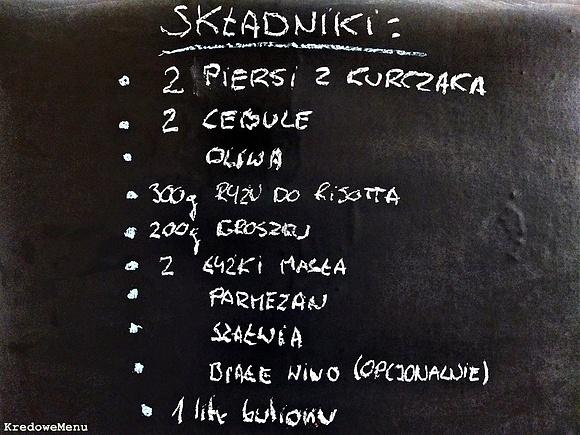 SKŁADNIKI:
• 2 PIERSI Z KURCZAKA
• 2 CEBULE
• OLIWA
• 300g RYŻU DO RISOTTA
• 200g GROSZKU
• 2 ŁYŻKI MASŁA
• PARMEZAN
• SZAŁWIA
• BIAŁE WINO (OPCJONALNIE)
• 1 litr bulionu
KredoweMenu